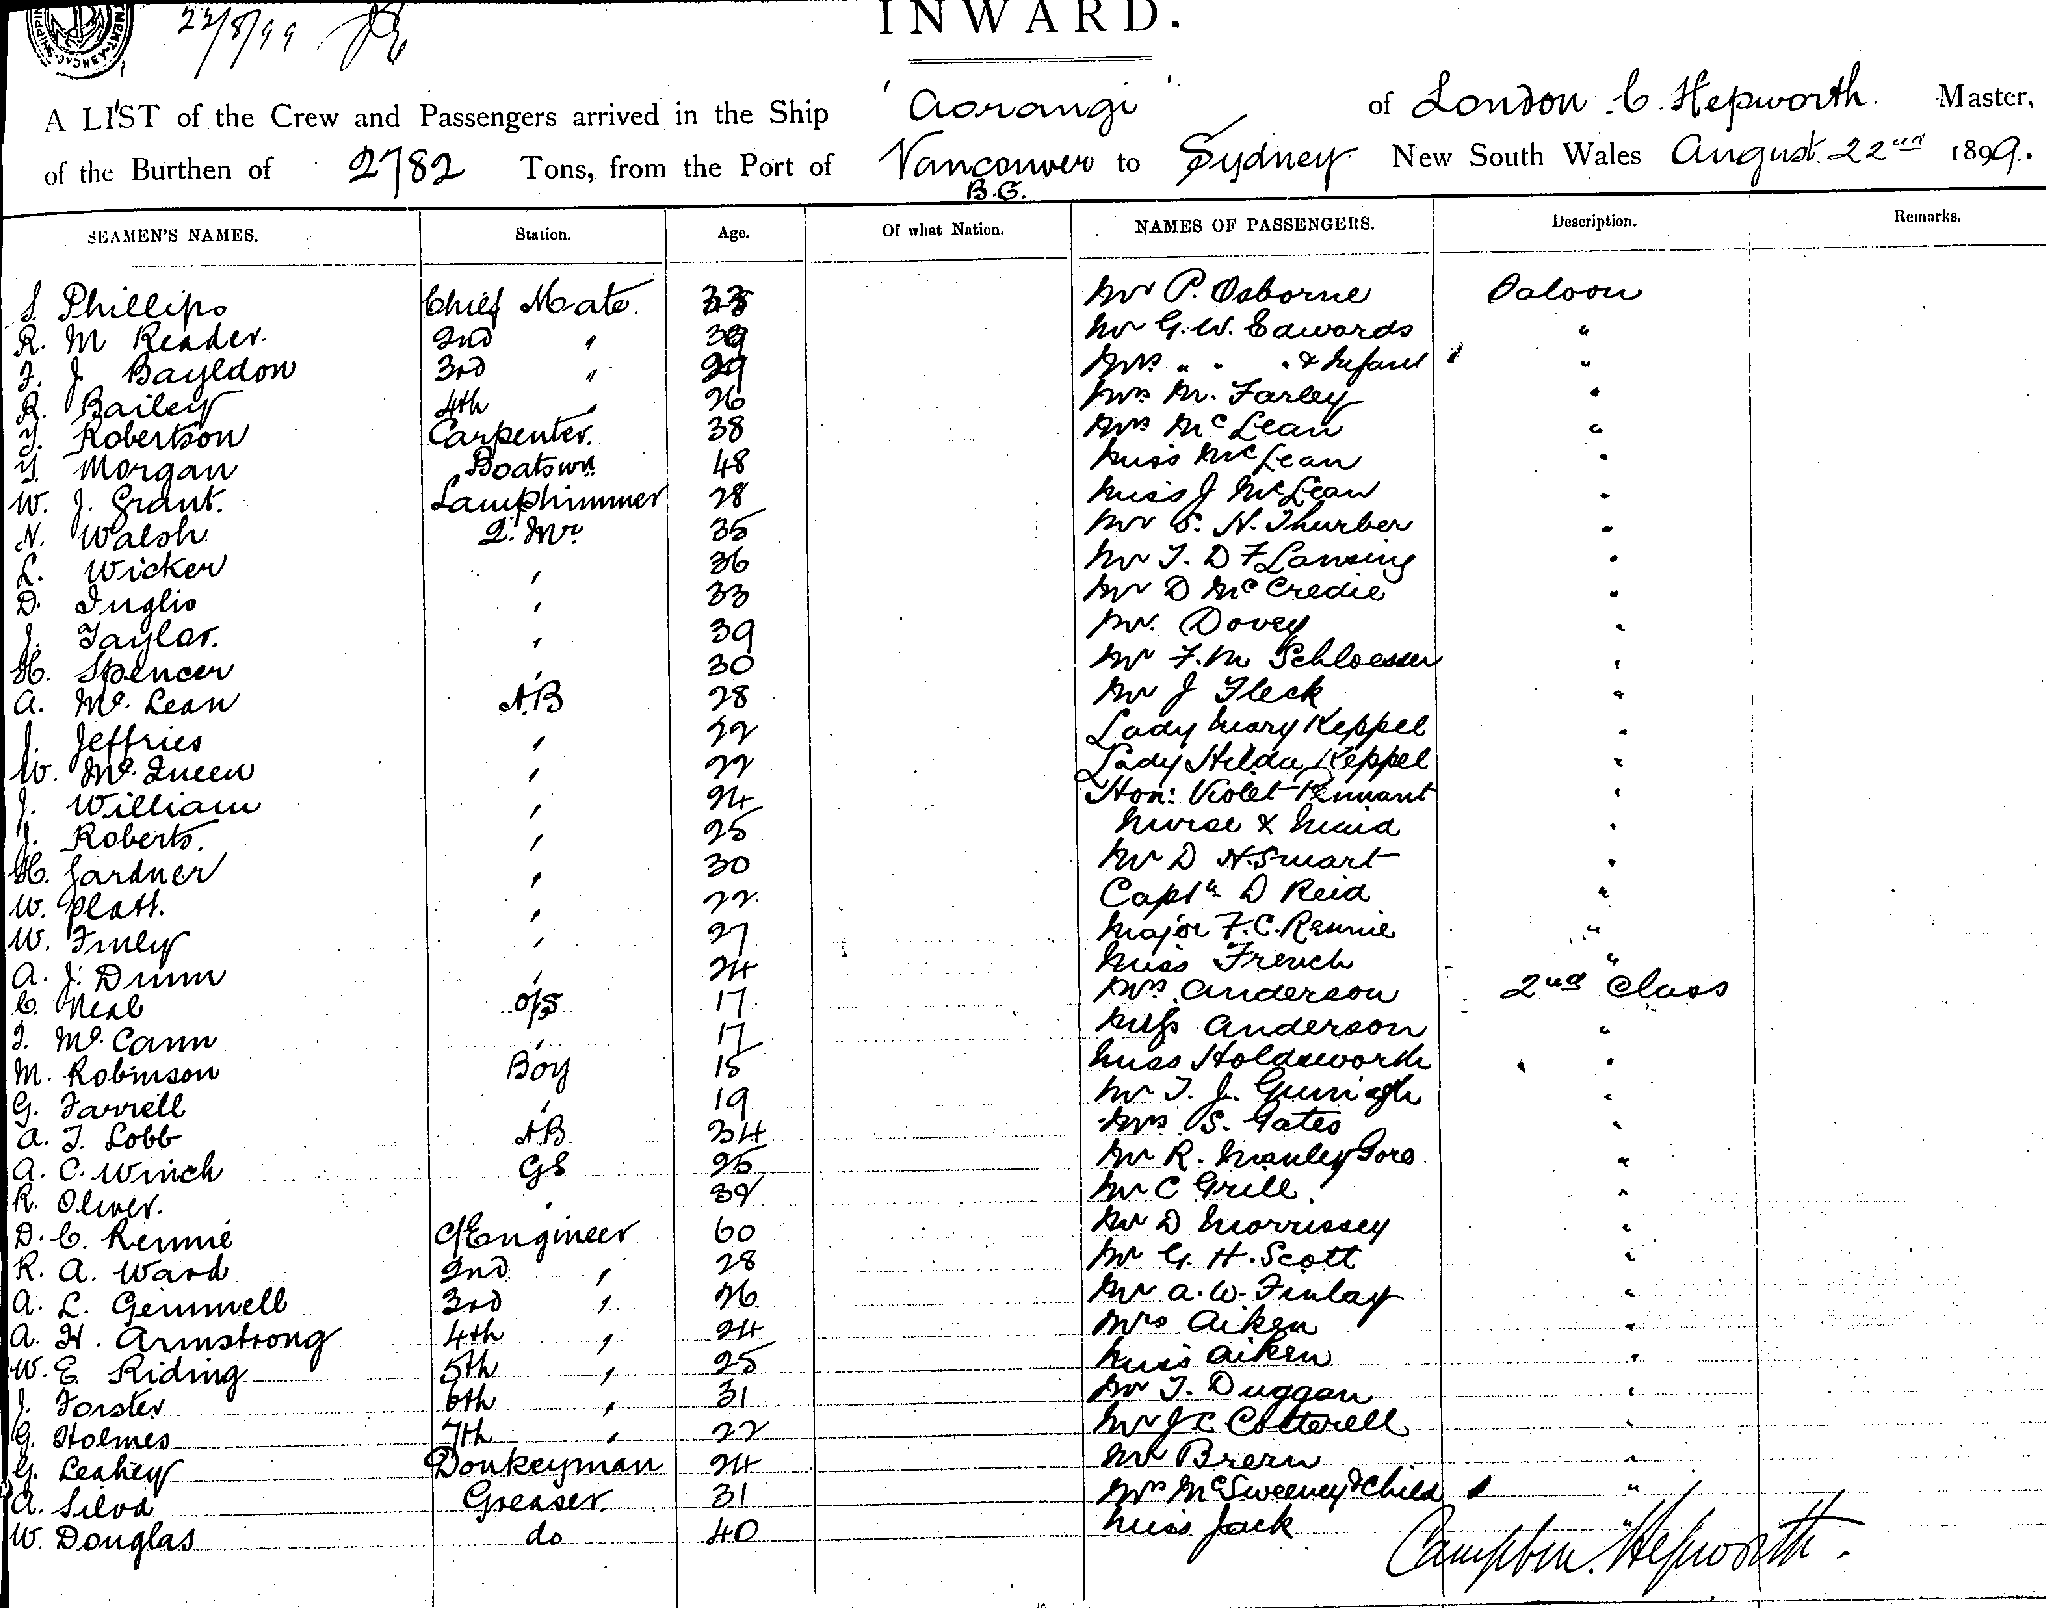 22/8/99
INWARD.
A LIST of the Crew and Passengers arrived in the Ship 'Aorangi' of London C. Hepworth. Master,
of the Burthen of 2782 Tons, from the Port of Vancouver to Sydney New South Wales August 22nd 1899.
B.C.
SEAMEN'S NAMES. Station. Age. Of what Nation. NAMES OF PASSENGERS. Description. Remarks.
S Phillips Chief Mate. 33 Mr P. Osborne Saloon
R. M Reader. 2nd " 39 Mr G. W. Edwards "
J. J Bayldon 3rd " 29 Mrs " " " & Infant 1 "
R. Bailey 4th " 26 Mrs M. Farley "
T. Robertson Carpenter. 38 Mrs McLean "
T. Morgan Boatswn 48 Miss McLean "
W. J. Grant. Lamptrimmer 28 Miss J McLean "
N. Walsh Q. Mr 35 Mr S. N. Thurber "
L. Wicker " 36 Mr T. D F Lansing "
D. Inglis " 33 Mr D McCredie "
J. Taylor. " 39 Mr. Dovey "
H. Spencer " 30 Mr F. M Schloesser "
A. McLean A.B 28 Mr J Fleck "
J. Jeffries " 22 Lady Mary Keppel "
W. McQueen " 22 Lady Hilda Keppel "
J. William " 24 Hon: Violet Pennant "
J. Roberts. " 25 Nurse & Maid "
H. Gardner " 30 Mr D H. Smart "
W. Platt. " 22. Captn D Reid "
W. Finley " 27 Major F. C. Rennie "
A. J. Dunn " 24 Miss French "
C. Neal o/s 17 Mrs Anderson 2nd Class
J. McCann " 17 Miss Anderson "
M. Robinson Boy 15 Miss Holdsworth "
G. Farrell " 19 Mr T. J. "
A. T. Lobb A.B 34 Mrs S. Gates "
A. C. Winch GS 25 Mr R. Manley Gore "
R. Oliver. " 39 Mr C Grill. "
D. C. Rennie C/Engineer 60 Mr D Morrissey "
R. A. Ward 2nd " 28 Mr G. H. Scott "
A. L. Gemmell 3rd " 26 Mr A. W. Finlay "
A. H. Armstrong 4th " 24 Mrs Aiken "
W. E Riding 5th " 25 Miss Aiken "
J. Forster 6th " 31 Mr T. Duggan "
G. Holmes 7th " 22 Mr J C Cotterell "
G. Leahey Donkeyman 24 Mr Brern "
A. Silva Greaser. 31 Mrs McSweeney & Child 1 "
W. Douglas do 40 Miss Jack "
Campbell Hepworth.